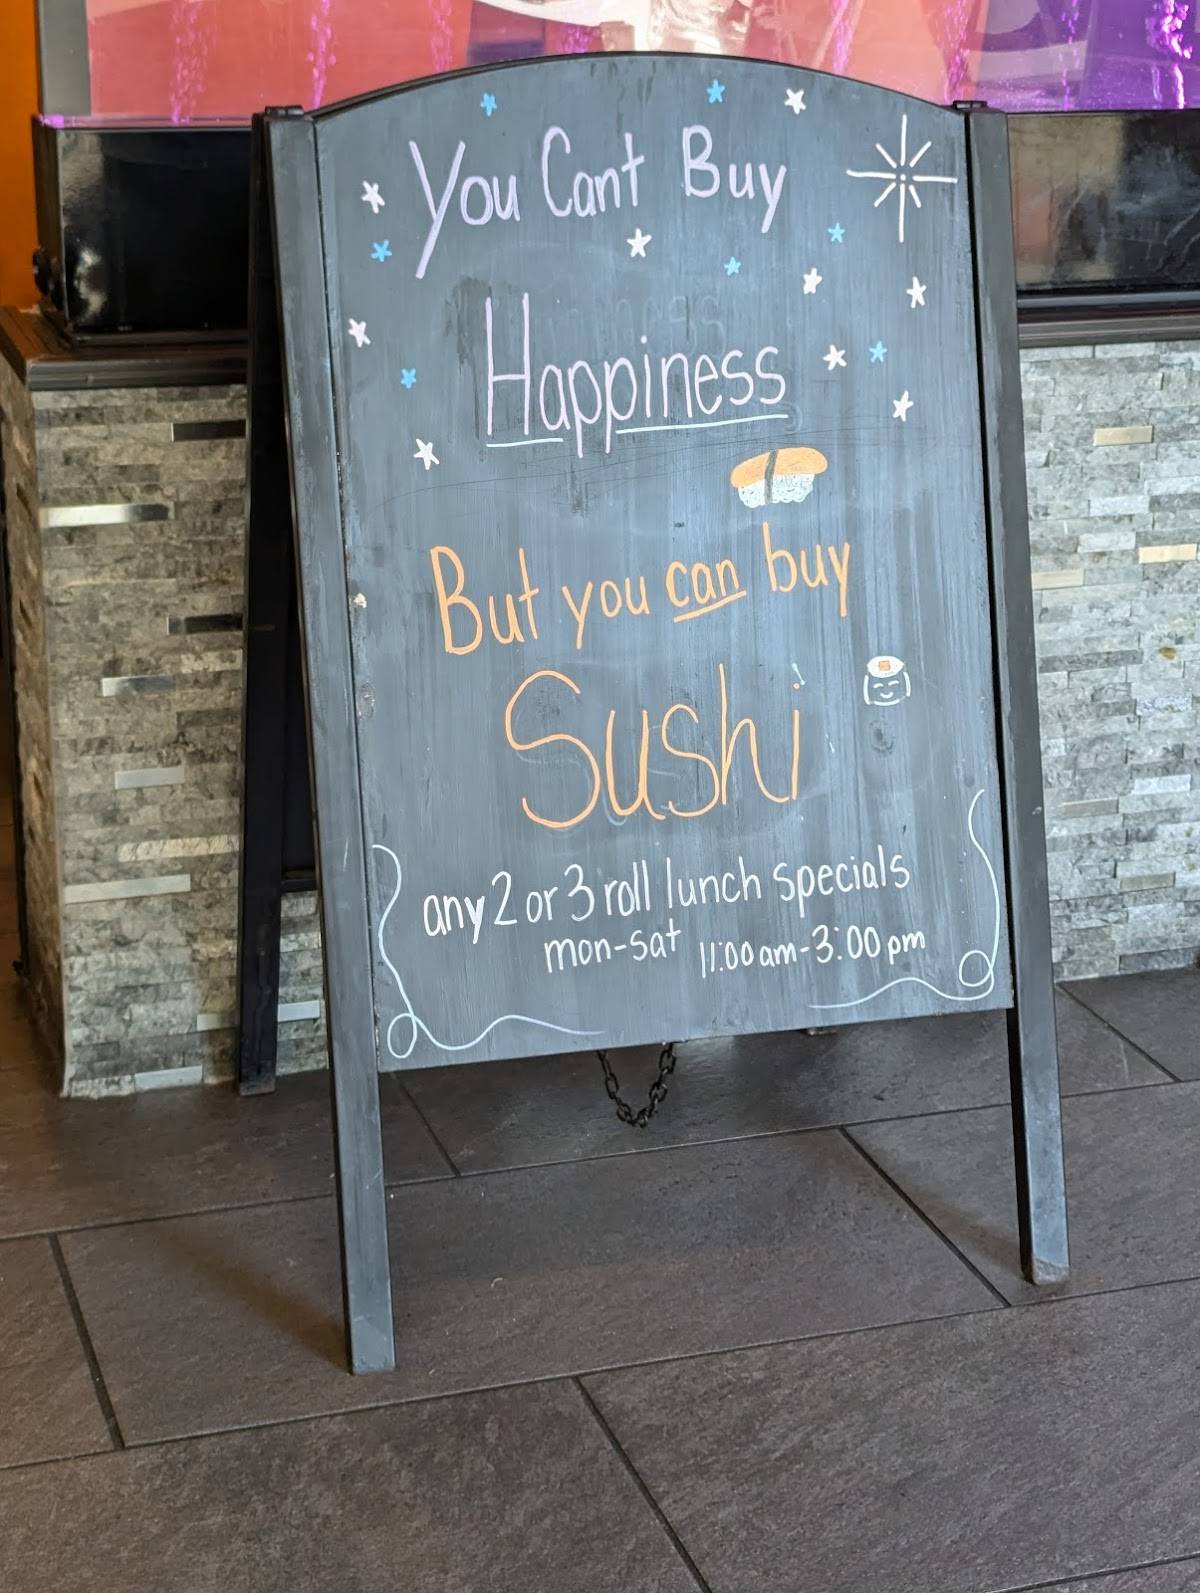 You Cant Buy
Happiness
But you can buy
Sushi
any 2 or 3 roll lunch specials
mon-sat 11:00 am-3:00 pm